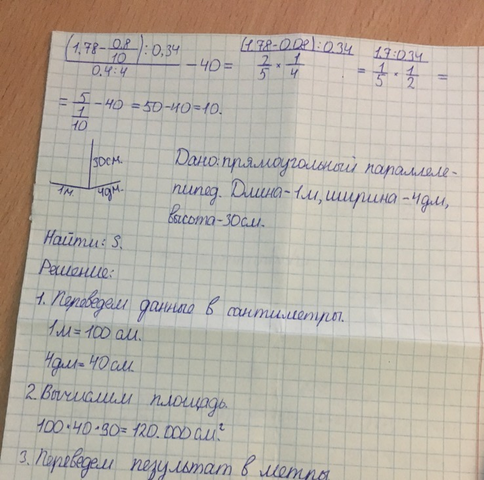 (1,78 - 0,8/10) : 0,34 / 0,4 : 4 - 40 = (1,78 - 0,08) : 0,34 / 2/5 × 1/4 = 1,7 : 0,34 / 1/5 × 1/2 =
= 5 / 1/10 - 40 = 50 - 40 = 10.
30см.
1м. 4дм.
Дано: прямоугольный параллеле-
пипед. Длина - 1м, ширина - 4дм,
высота - 30см.
Найти: S.
Решение:
1. Переведем данные в сантиметры.
1м = 100 см.
4дм = 40 см.
2. Вычислим площадь
100 · 40 · 30 = 120.000 см.²
3. Переведем результат в метры